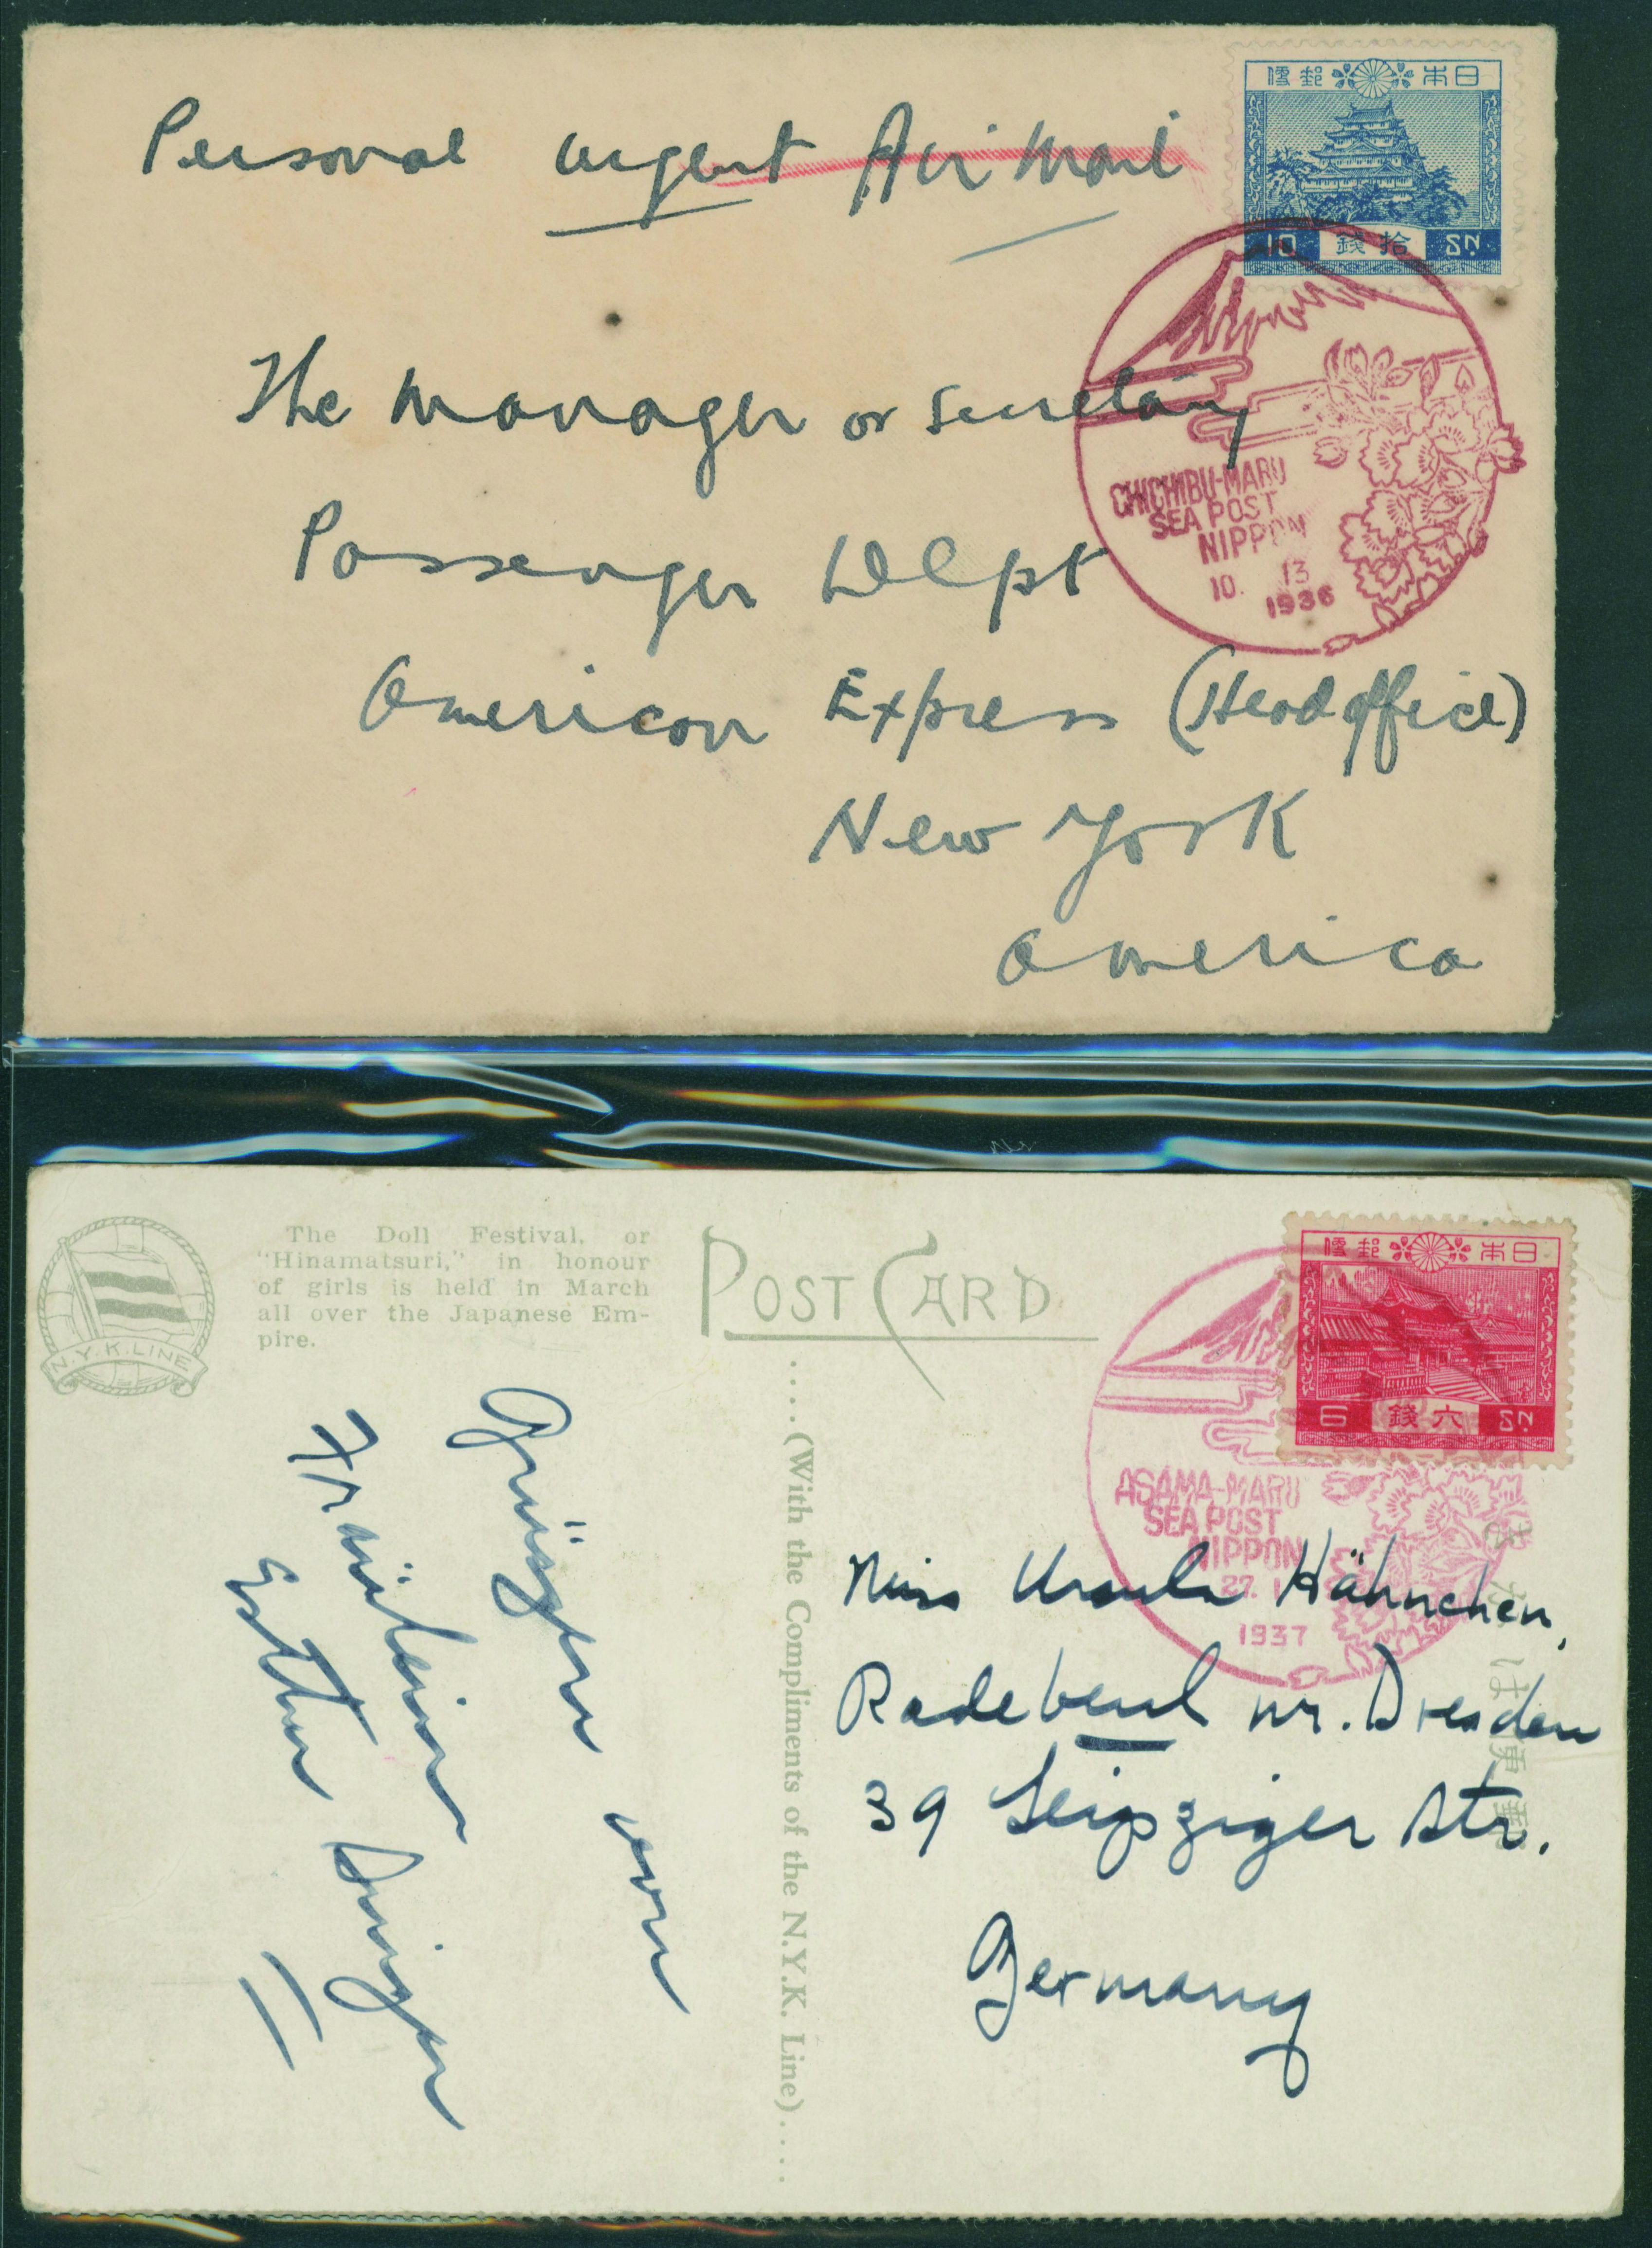 Personal urgent Air Mail
便郵 本日
10 錢拾 SN.
The Manager or Secretary
Passenger Dept
American Express (Head office)
New York
America
CHICHIBU-MARU
SEA POST
NIPPON
10. 13
1936
N.Y.K. LINE
The Doll Festival, or
"Hinamatsuri," in honour
of girls is held in March
all over the Japanese Em-
pire.
POST CARD
便郵 本日
6 錢六 SN.
ASAMA-MARU
SEA POST
NIPPON
27. 1
1937
....(With the Compliments of the N.Y.K. Line)....
Miss Ursula Hähnchen,
Radebeul nr. Dresden
39 Leipziger Str.
Germany
von
Fräulein
Esther